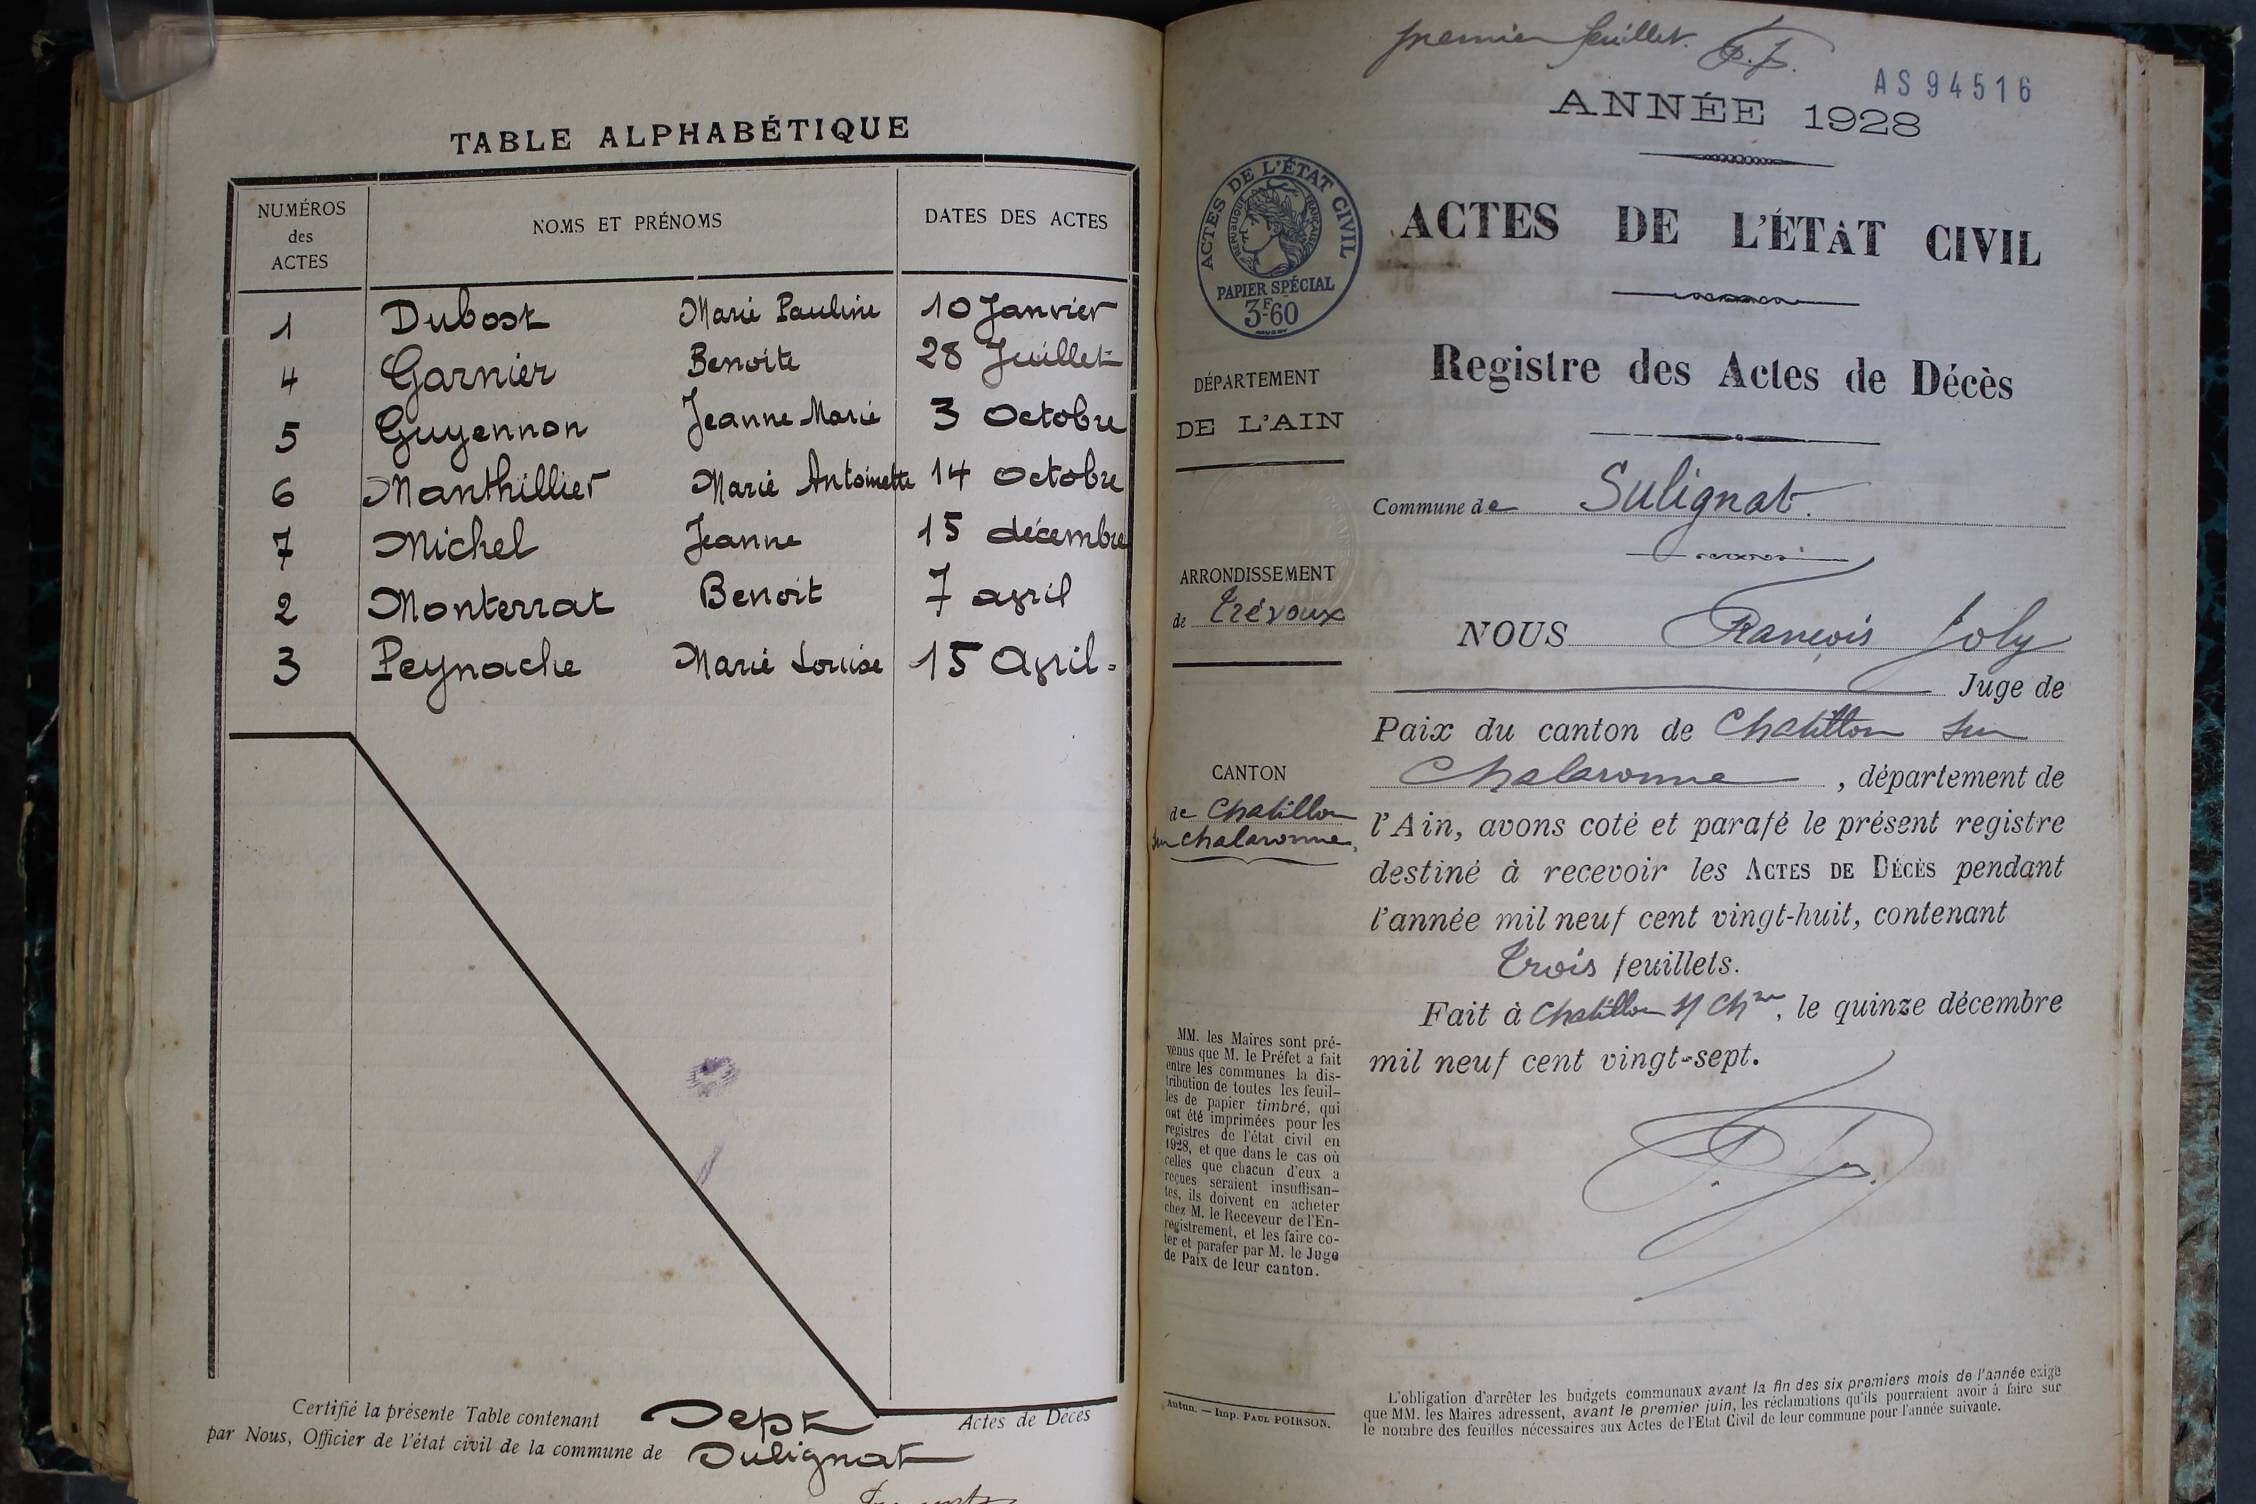 TABLE ALPHABÉTIQUE
NUMÉROS des ACTES NOMS ET PRÉNOMS DATES DES ACTES
1 Dubost Marie Pauline 10 Janvier
4 Garnier Benoite 28 Juillet
5 Guyennon Jeanne Marie 3 Octobre
6 Manthillier Marie Antoinette 14 Octobre
7 Michel Jeanne 15 décembre
2 Monterrat Benoit 7 avril
3 Peynache Marie Louise 15 Avril
Certifié la présente Table contenant Sept Actes de Décès
par Nous, Officier de l'état civil de la commune de Sulignat
premier feuillet. F. J.
AS94516
ANNÉE 1928
ACTES DE L'ÉTAT CIVIL
RÉPUBLIQUE FRANÇAISE
PAPIER SPÉCIAL
3F-60
ACTES DE L'ÉTAT CIVIL
Registre des Actes de Décès
DÉPARTEMENT
DE L'AIN
Commune de Sulignat.
ARRONDISSEMENT
de Trévoux
NOUS François Joly
Juge de
Paix du canton de Chatillon sur
Chalaronne, département de
CANTON
de Chatillon
sur Chalaronne,
l'Ain, avons coté et parafé le présent registre
destiné à recevoir les ACTES DE DÉCÈS pendant
l'année mil neuf cent vingt-huit, contenant
Trois feuillets.
Fait à Chatillon s/ Chne, le quinze décembre
mil neuf cent vingt-sept.
MM. les Maires sont pré-
venus que M. le Préfet a fait
entre les communes la dis-
tribution de toutes les feuil-
les de papier timbré, qui
ont été imprimées pour les
registres de l'état civil en
1928, et que dans le cas où
celles que chacun d'eux a
reçues seraient insuffisan-
tes, ils doivent en acheter
chez M. le Receveur de l'En-
registrement, et les faire co-
ter et parafer par M. le Juge
de Paix de leur canton.
F. J.
Autun. — Imp. PAUL POIRSON.
L'obligation d'arrêter les budgets communaux avant la fin des six premiers mois de l'année exige
que MM. les Maires adressent, avant le premier juin, les réclamations qu'ils pourraient avoir à faire sur
le nombre des feuilles nécessaires aux Actes de l'Etat Civil de leur commune pour l'année suivante.